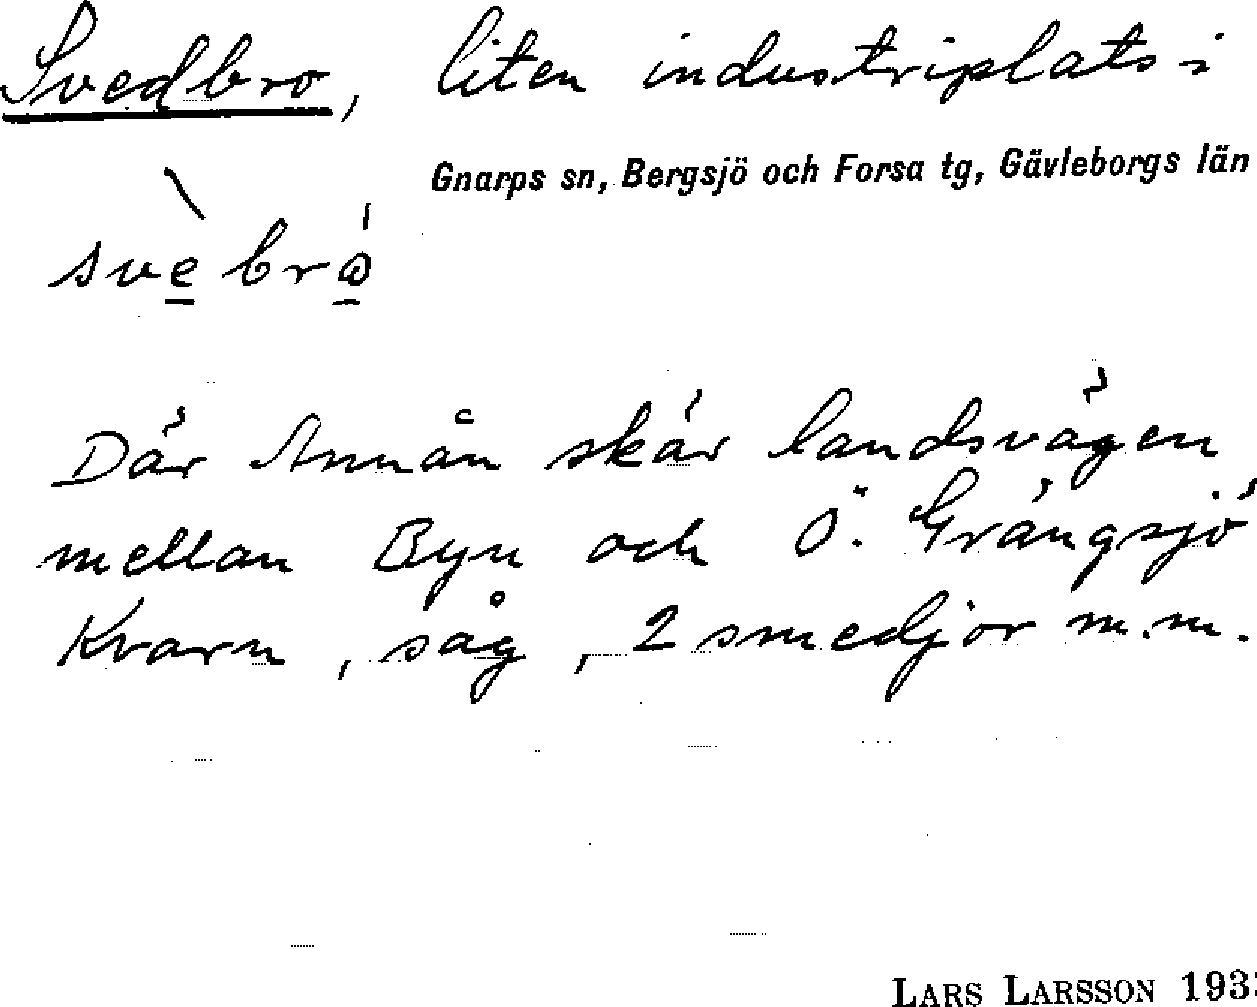 Svedbro, liten industriplats i
Gnarps sn, Bergsjö och Forsa tg, Gävleborgs län
svè̱bró̱
Där Annån skär landsvägen
mellan Byn och Ö. Grängsjö
Kvarn, såg, 2 smedjor m.m.
LARS LARSSON 193